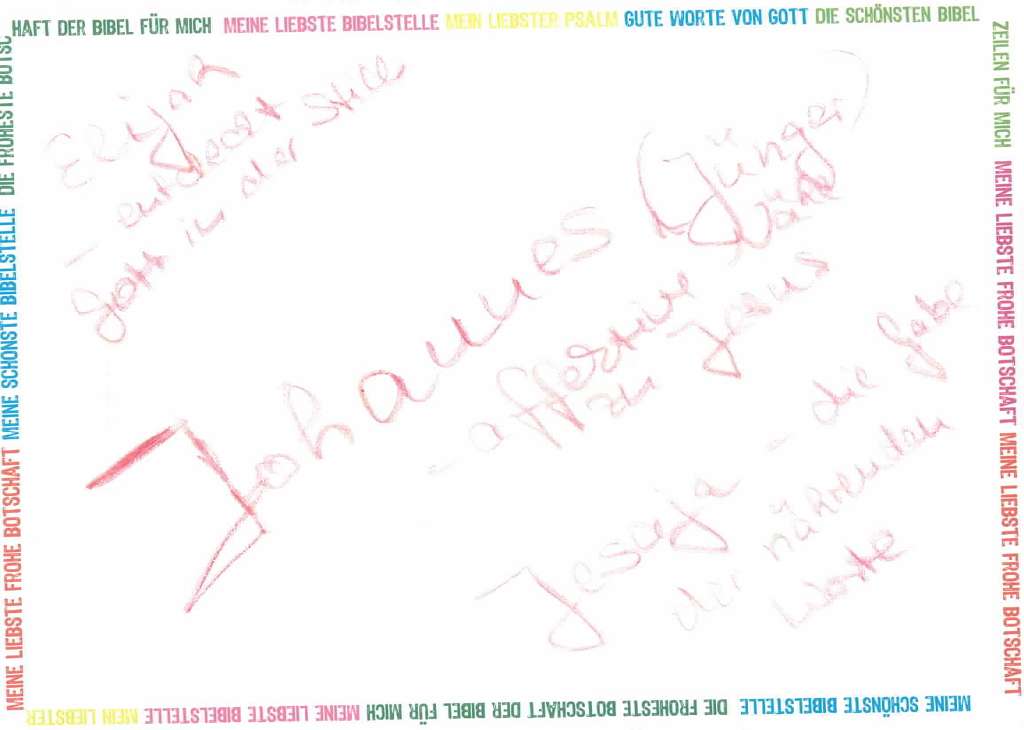 HAFT DER BIBEL FÜR MICH MEINE LIEBSTE BIBELSTELLE MEIN LIEBSTER PSALM GUTE WORTE VON GOTT DIE SCHÖNSTEN BIBEL
ZEILEN FÜR MICH MEINE LIEBSTE FROHE BOTSCHAFT MEINE LIEBSTE FROHE BOTSCHAFT
MEINE SCHÖNSTE BIBELSTELLE DIE FROHESTE BOTSCHAFT DER BIBEL FÜR MICH MEINE LIEBSTE BIBELSTELLE MEIN LIEBSTER
MEINE LIEBSTE FROHE BOTSCHAFT MEINE SCHÖNSTE BIBELSTELLE DIE FROHESTE BOTSC
Elija
– entdeckt
Gott in der Stille
Johannes (Jünger)
– affektive
zu Jesus
Jesaja – die Gabe
der nährenden
Worte